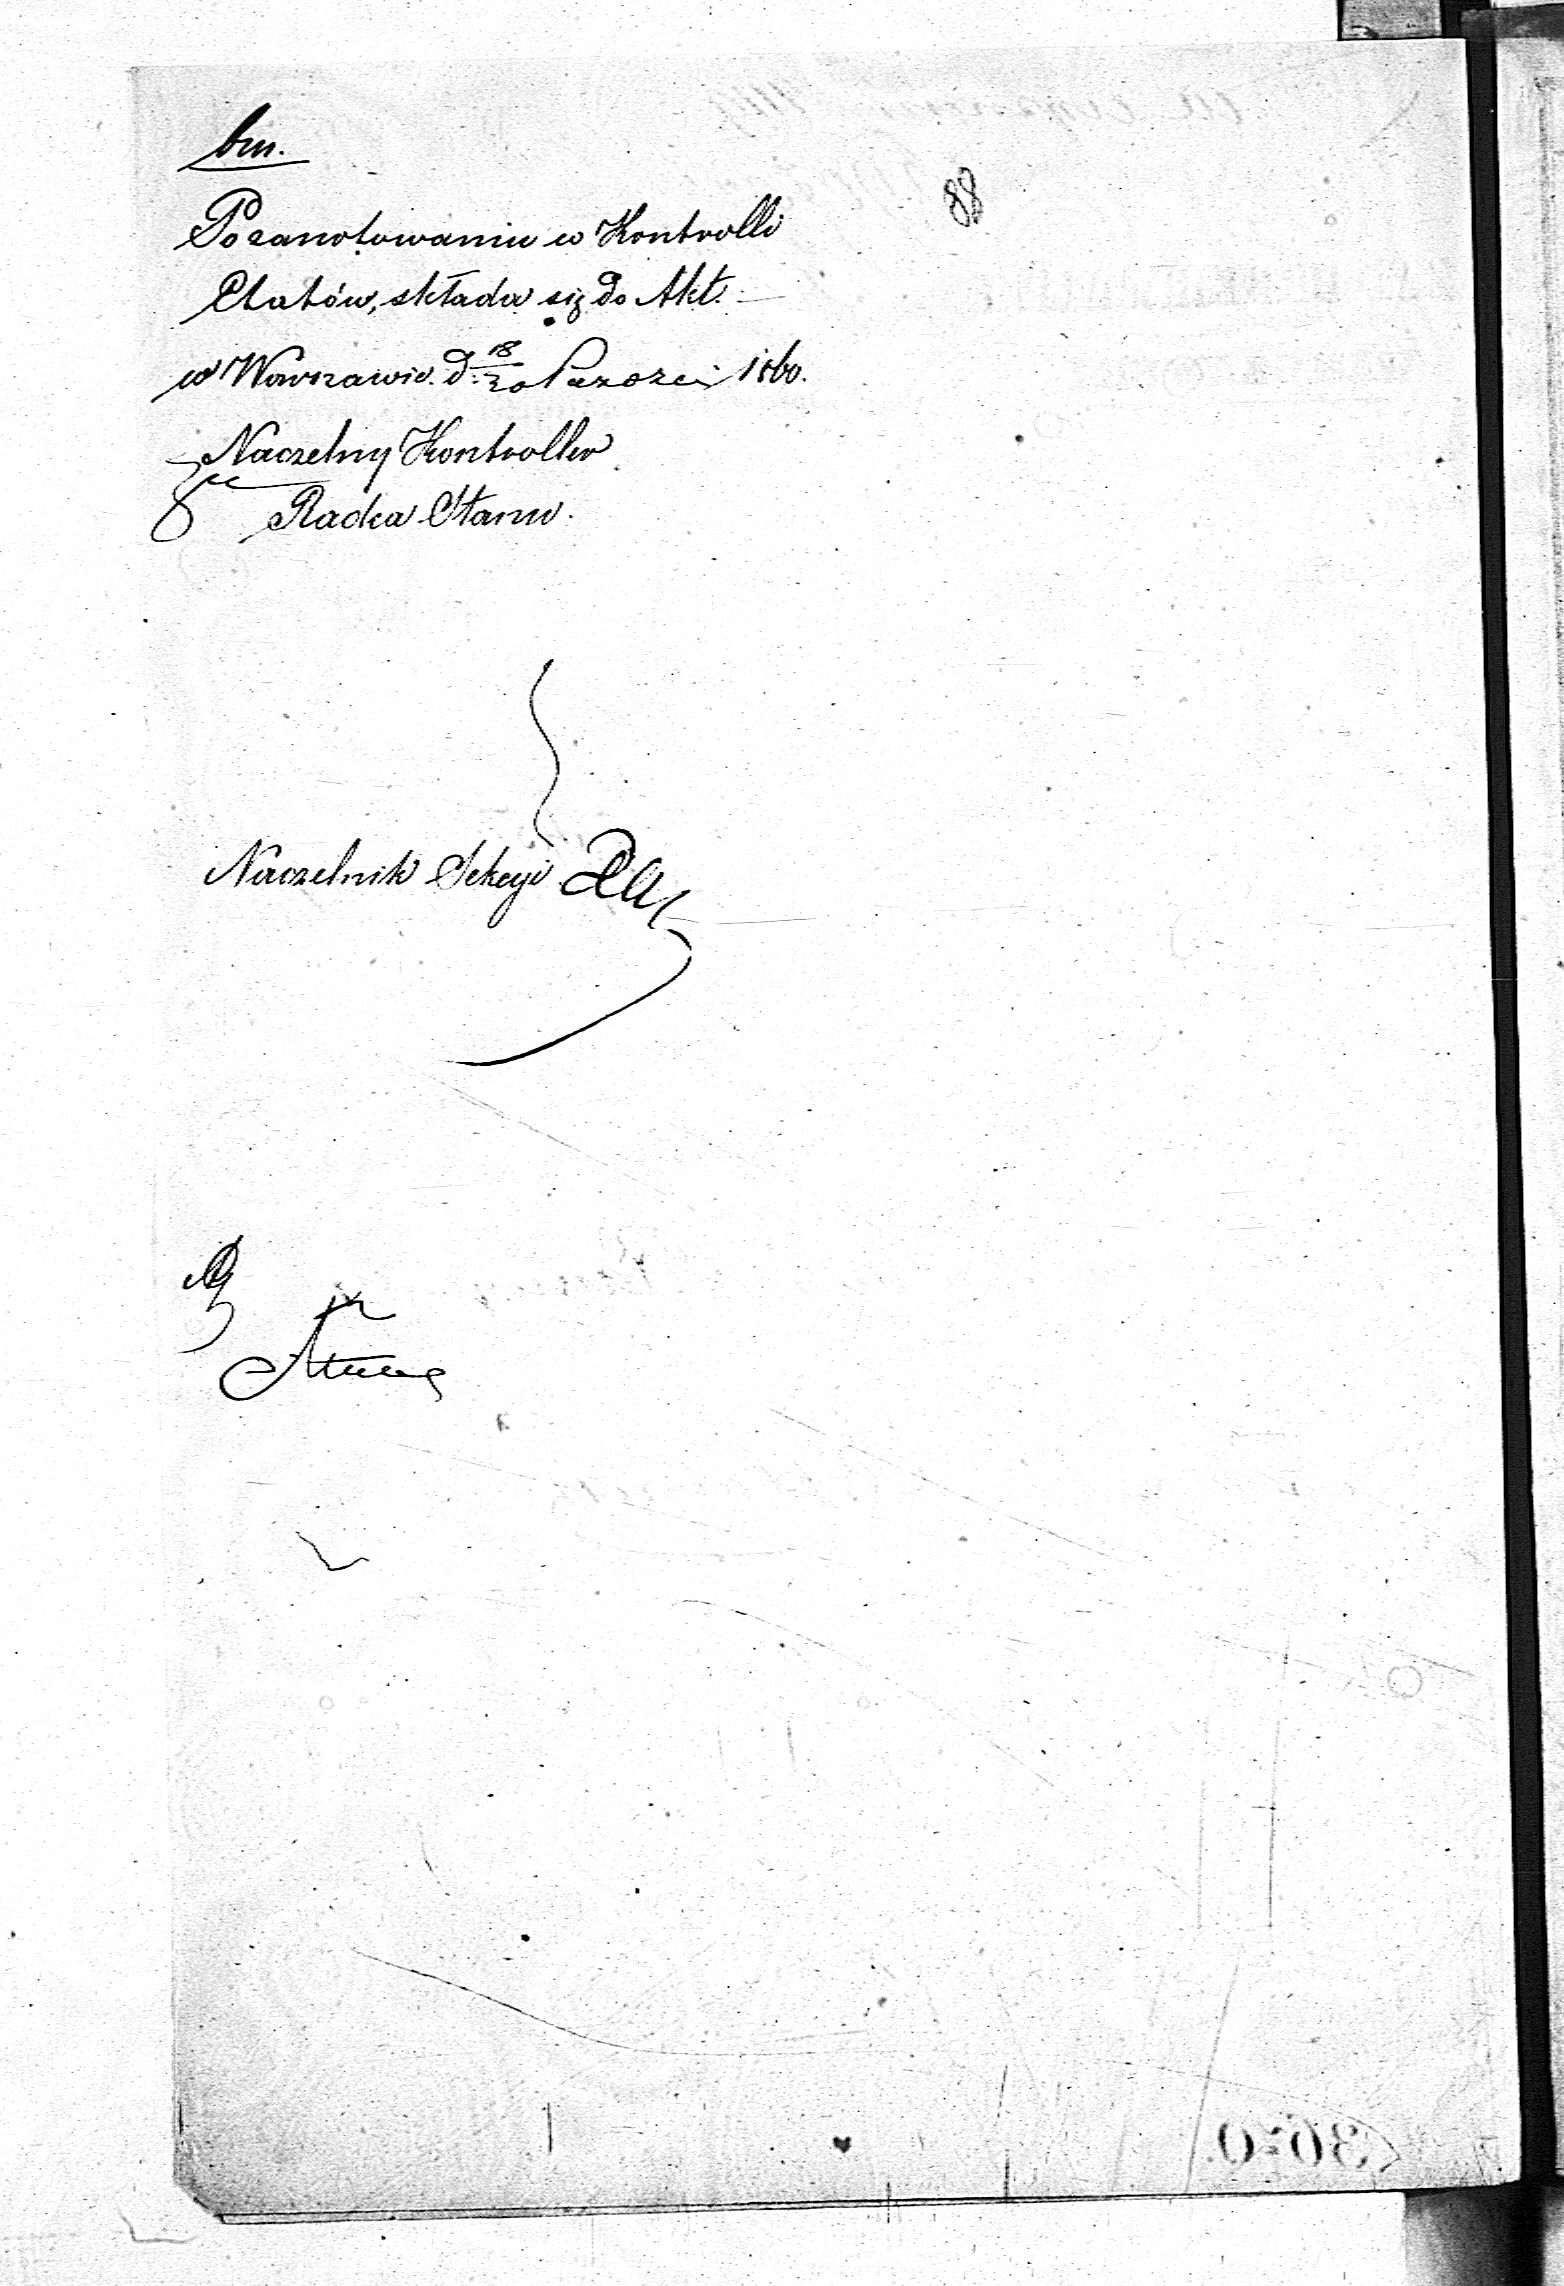 bm.
88
Po zanotowaniu w Kontrolli
Etatów, składa się do Akt.
w Warszawie d: 18/30 Paździer: 1860.
Naczelny Kontroller
Radca Stanu.
Naczelnik Sekcyi